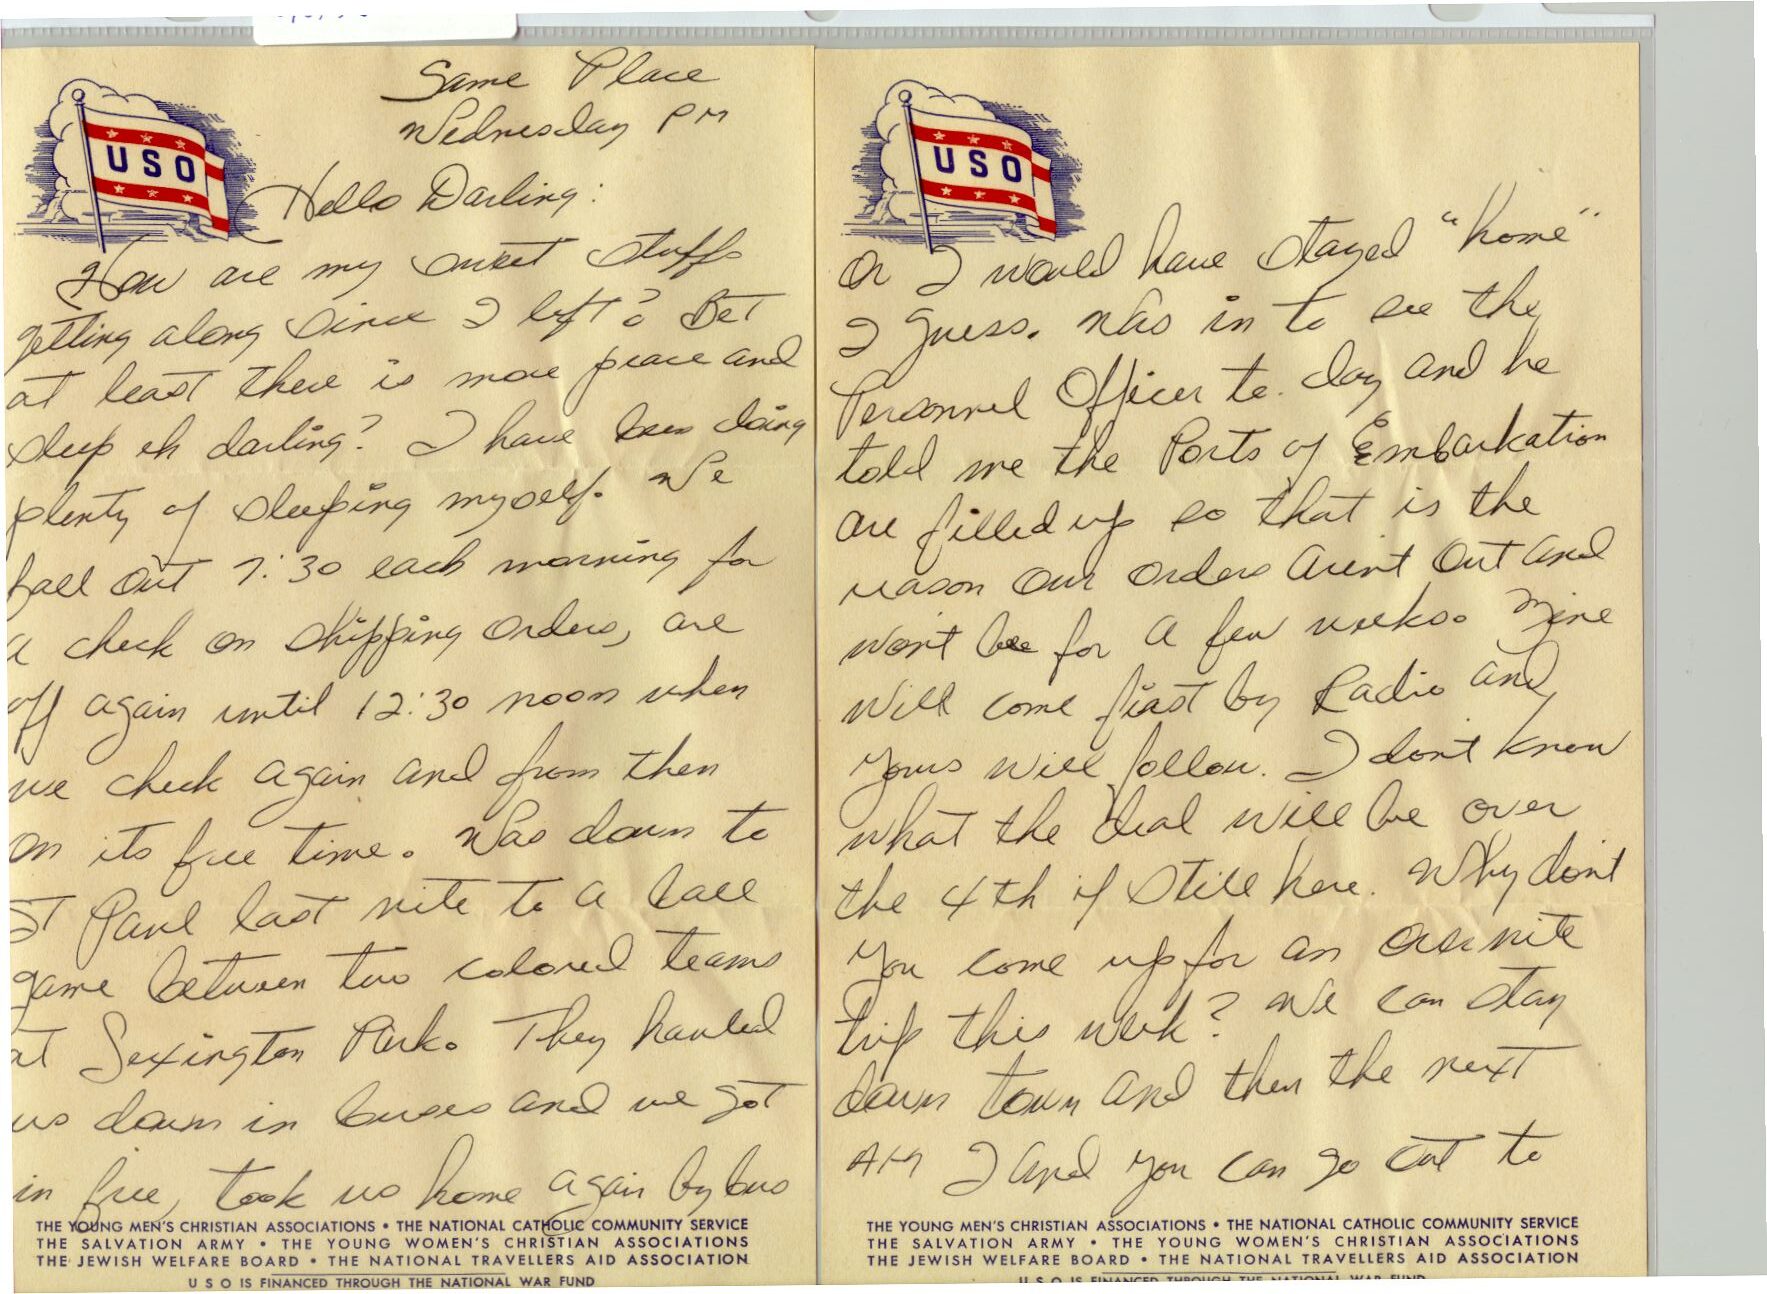 Same Place
Wednesday PM
USO
Hello Darling:
How are my sweet stuffs
getting along since I left? Bet
at least there is more peace and
sleep eh darling? I have been doing
plenty of sleeping myself. We
fall out 7:30 each morning for
a check on shipping orders, are
off again until 12:30 noon when
we check again and from then
on its free time. Was down to
ST Paul last nite to a ball
game between two colored teams
at Lexington Park. They hauled
us down in buses and we got
in free, took us home again by bus
THE YOUNG MEN'S CHRISTIAN ASSOCIATIONS • THE NATIONAL CATHOLIC COMMUNITY SERVICE
THE SALVATION ARMY • THE YOUNG WOMEN'S CHRISTIAN ASSOCIATIONS
THE JEWISH WELFARE BOARD • THE NATIONAL TRAVELLERS AID ASSOCIATION
USO IS FINANCED THROUGH THE NATIONAL WAR FUND
USO
or I would have stayed "home"
I guess. Was in to see the
Personnel Officer to-day and he
told me the Ports of Embarkation
are filled up so that is the
reason our orders arent out and
wont be for a few weeks. Mine
will come first by Radio and
yours will follow. I dont know
what the deal will be over
the 4th if still here. Why dont
you come up for an overnite
trip this week? We can stay
down town and then the next
AM I and you can go out to
THE YOUNG MEN'S CHRISTIAN ASSOCIATIONS • THE NATIONAL CATHOLIC COMMUNITY SERVICE
THE SALVATION ARMY • THE YOUNG WOMEN'S CHRISTIAN ASSOCIATIONS
THE JEWISH WELFARE BOARD • THE NATIONAL TRAVELLERS AID ASSOCIATION
USO IS FINANCED THROUGH THE NATIONAL WAR FUND